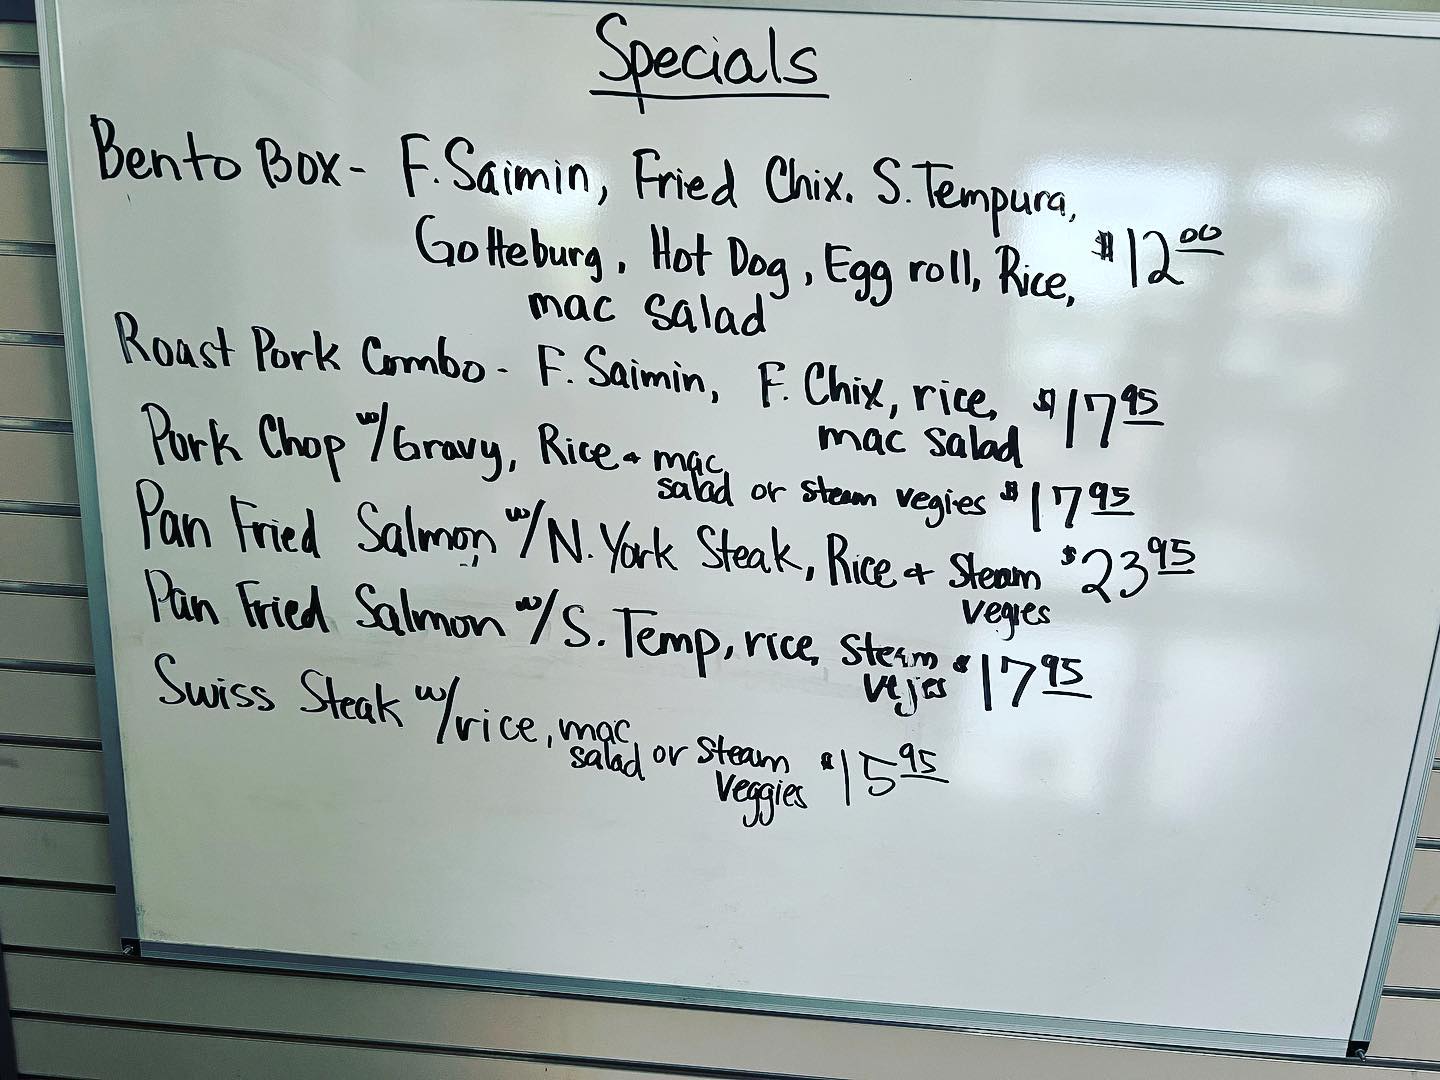 Specials
Bento Box - F. Saimin, Fried Chix. S. Tempura,
Gotteburg, Hot Dog, Egg roll, Rice, $12.00
mac salad
Roast Pork Combo - F. Saimin, F. Chix, rice, $17.95
mac salad
Pork Chop w/Gravy, Rice + mac
salad or steam vegies $17.95
Pan Fried Salmon w/N. York Steak, Rice + Steam $23.95
vegies
Pan Fried Salmon w/S. Temp, rice, steam $17.95
vejies
Swiss Steak w/rice, mac
salad or steam $15.95
veggies